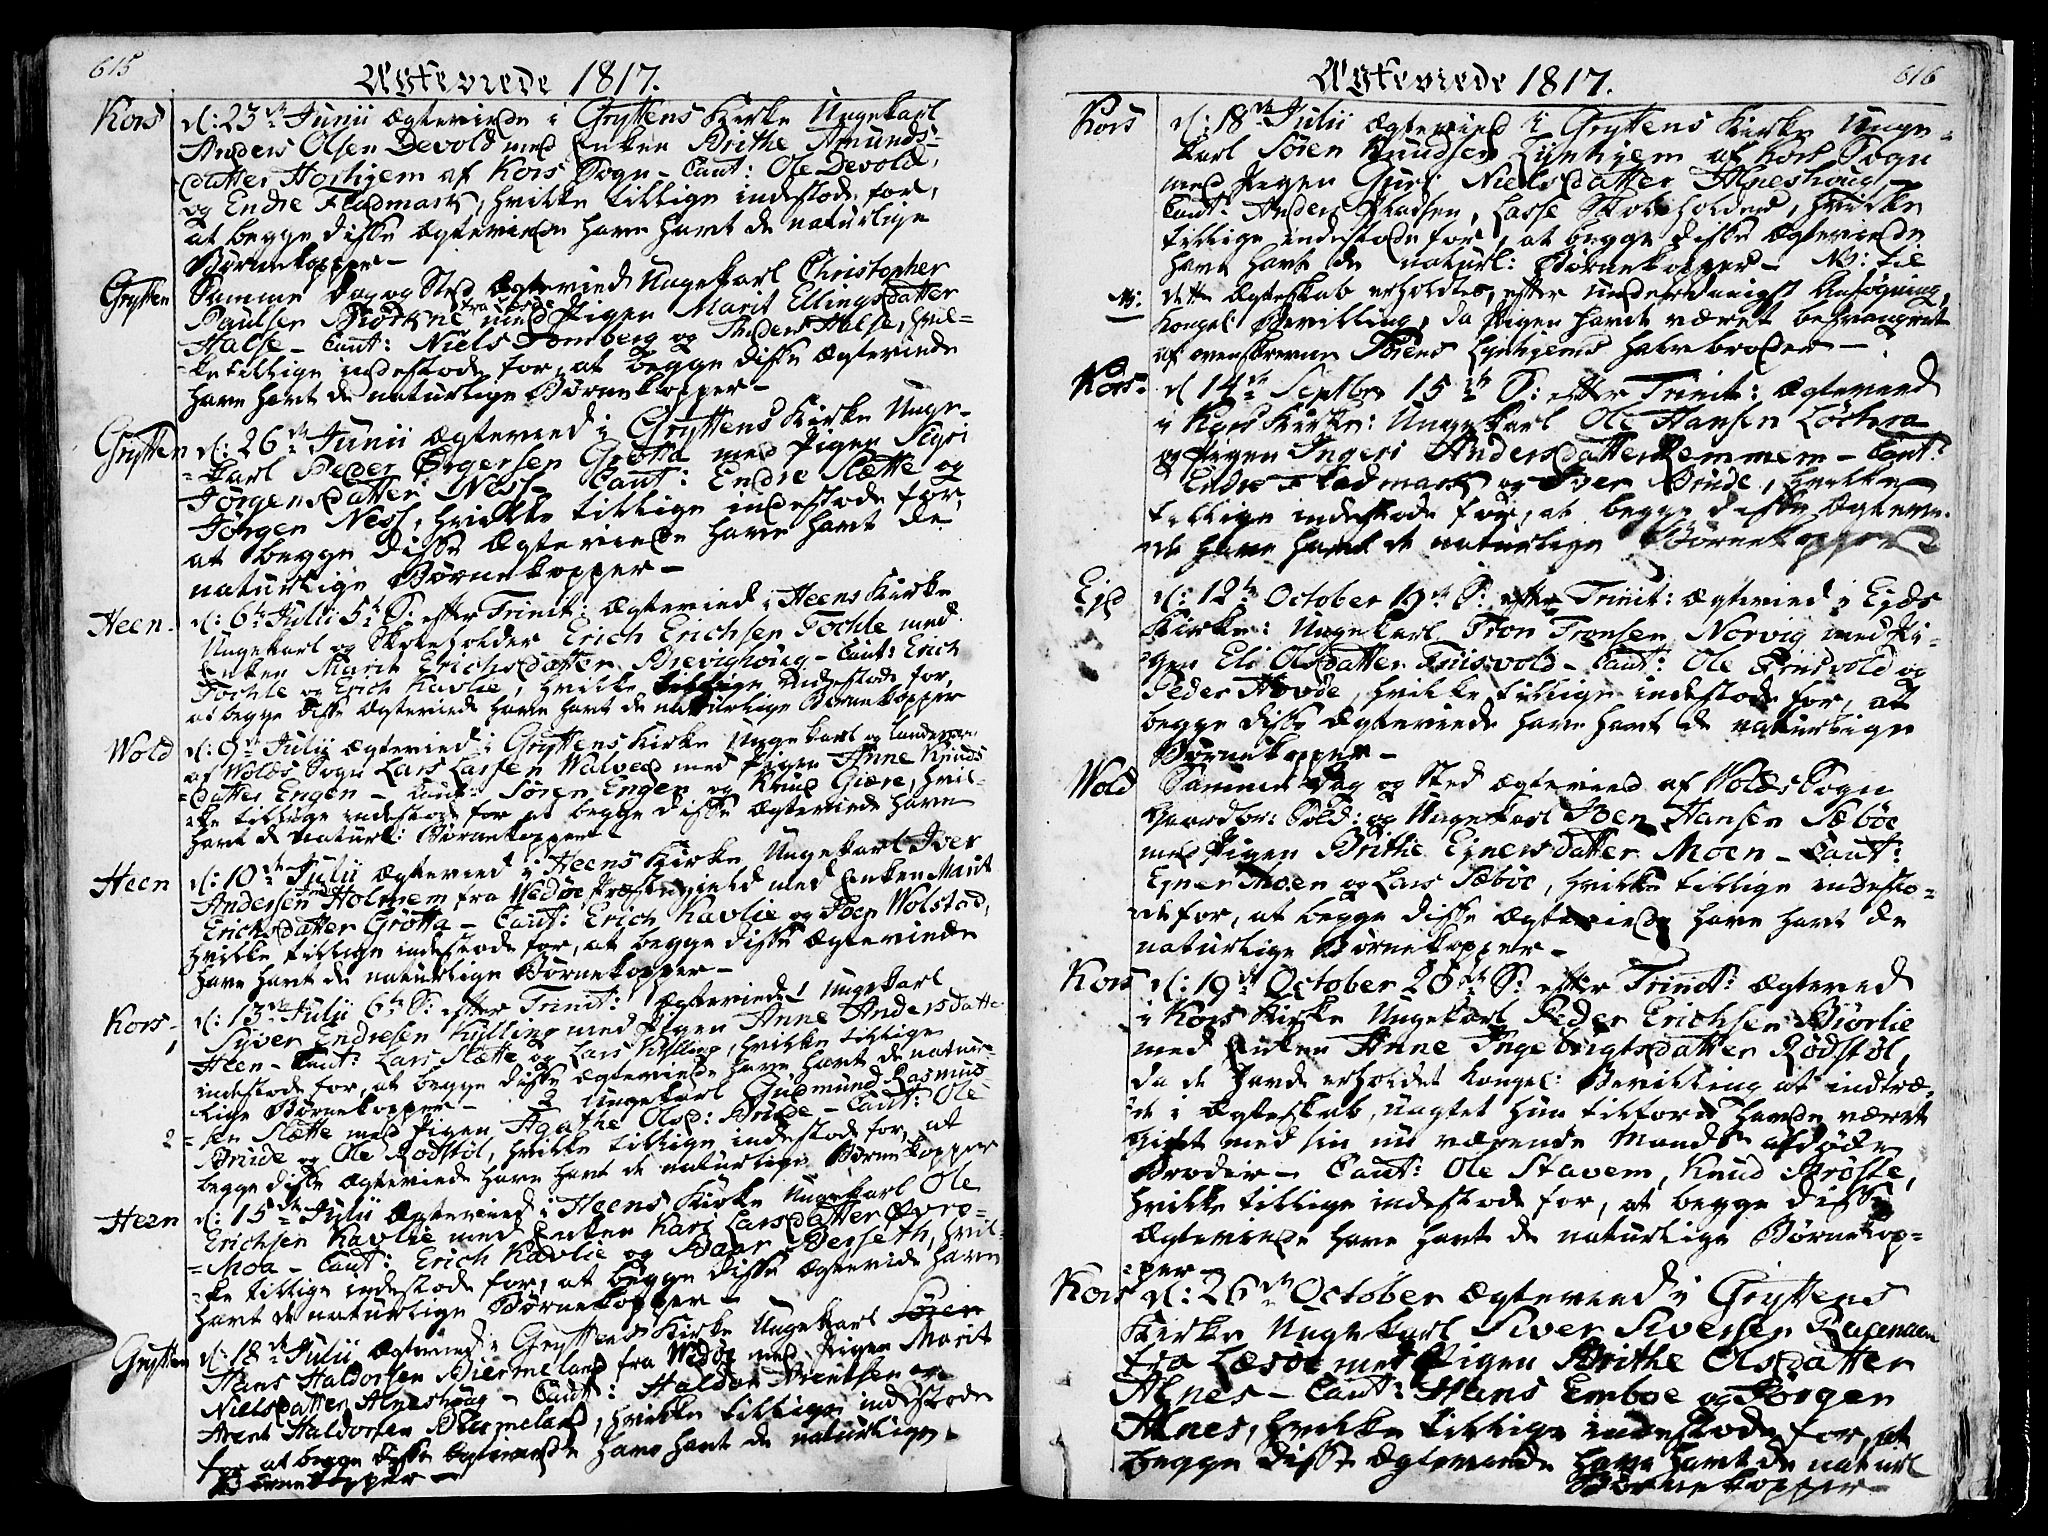 615
Ægteviede 1817.
Kors d: 23de Junii Ægteviede i Gryttens Kirke Ungekarl
Anders Olsen Devold med Enken Brithe Amunds-
datter Horhjem af Kors Sogn - Caut: Ole Devold,
og Endre Fladmark, hvilke tillige indestode for,
at begge disse Ægteviede have havt de naturlige
Børnekopper -
Grytten Samme Dag og Sted Ægteviede Ungekarl Christopher
Paulsen med Pigen Marit Ellingsdatter
Halse - Caut: Niels Tomberg og Anders Halse, hvil-
ke tillige indestode for, at begge disse Ægteviede
have havt de naturlige Børnekopper -
Grytten d: 26de Junii Ægteviede i Gryttens Kirke Unge-
karl Peder Ørgersen Grøtta med Pigen Sigri
Jørgensdatter Ness - Caut: Endre Slette og
Jørgen Ness, hvilke tillige indestode for
at begge disse Ægteviede have havt de
naturlige Børnekopper -
Heen - d: 6te Julii 5te S: efter Trinit: Ægteviede i Heens Kirke
Ungekarl og Skoleholder Erich Erichsen Tochle med
Enken Marit Erichsdatter Brevighoug - Caut: Erich
Tochle og Erich Kavlie, hvilke tillige indestode for,
at begge disse Ægteviede have havt de naturlige Børnekopper
Wold d: 9de Julii Ægteviede i Gryttens Kirke Ungekarl og Landeværn
af Wolds Sogn Lars Larsen Walved med Pigen Anne Knuds
datter Engen - Caut: Søren Engen og Knud Giære, hvil-
ke tillige indestode for at begge disse Ægteviede have
havt de naturl: Børnekopper -
Heen d: 10de Julii Ægteviede i Heens Kirke Ungekarl Iver
Andersen Holmem fra Wedøe Præstegield med Enken Marit
Erichsdatter Grøtta - Caut: Erich Kavlie og Joen Wolstad,
hvilke tillige indestode for, at begge disse Ægteviede
have havt de naturlige Børnekopper -
Kors, d: 13de Julii 6te S: efter Trinit: Ægteviede 1 Ungekarl
Syver Endresen Kylling med Pigen Anne Andersdatter
Heen - Caut: Lars Slette og Lars Kylling, hvilke tillige
indestode for, at begge disse Ægteviede have havt de natur-
lige Børnekopper - 2 Ungekarl Gudmund Rasmus-
2 sen Slette med Pigen Agathe Olsd: Brude - Caut: Ole
Brude og Ole Rødstøl, hvilke tillige indestode for, at
begge disse Ægteviede have havt de naturlige Børnekopper
Heen d: 15de Julii Ægteviede i Heens Kirke Ungekarl Ole
Erichsen Kavlie med Enken Kari Larsdatter Øvre-
Moa - Caut: Erich Kavlie og Baar Berseth, hvil-
ke tillige indestode for, at begge disse Ægteviede have
havt de naturlige Børnekopper -
Grytten d: 18de Julii Ægteviede i Gryttens Kirke Ungekarl Søren
Hans Haldorsen Biermeland fra Wedøe med Pigen Marit
Nielsdatter Alneshoug - Caut: Haldor Arentsen og
Arent Haldorsen Biermeland, hvilke tillige indestode
for, at begge disse Ægteviede have havt de naturlige
Børnekopper -
616
Ægteviede 1817.
Kors d: 18de Julii Ægteviede i Gryttens Kirke Unge-
karl Søren Knudsen Lynhjem af Kors Sogn
med Pigen Guri Nielsdatter Alneshoug,
Caut: Anders Madsen, Lasse Skoleholder, hvilke
tillige indestode for, at begge disse Ægteviede
have havt de naturl: Børnekopper - NB: til
NB: dette Ægteskab erholdtes, efter underdanigst Ansøgning,
Kongel: Bevilling, da Pigen havde været besvangret
af ovenskrevne Sørens Lynhjems halvbroder -
Kors - d 14de Septbr 15de S: efter Trinit: Ægteviede
i Kors Kirke: Ungekarl Ole Hansen Løthera
og Pigen Ingeri Andersdatter Remmem - Caut:
Endre Fladmark og Iver Brude, hvilke
tillige indestode for, at begge disse Ægtevie-
de have havt de naturlige Børnekopper
Ejd d: 12te October 19de S: efter Trinit: Ægteviede i Ejds
Kirke: Ungekarl Tron Tronsen Norvig med Pi-
gen Eli Olsdatter Friisvold - Caut: Ole Friisvold og
Peder Hovde, hvilke tillige indestode for, at
begge disse Ægteviede have havt de naturlige
Børnekopper -
Wold Samme Dag og Sted Ægteviede af Wolds Sogn
Sold: og Ungekarl Joen Hansen Sæbøe
med Pigen Brithe Ejnersdatter Moen - Caut:
Ejner Moen og Lars Sæbøe, hvilke tillige indesto-
de for, at begge disse Ægteviede have havt de
naturlige Børnekopper -
Kors d: 19de October 20de S: efter Trinit: Ægteviede
i Kors Kirke Ungekarl Peder Erichsen Biørlie
med Enken Anne Ingebrigtsdatter Rødstøl,
da de havde erholdet Kongel: Bevilling at indtræ-
de i Ægteskab, uagtet hun tilforn havde været
gift med sin nu værende Mands afdøde
Broder - Caut: Ole Stavem, Knud Brøste,
hvilke tillige indestode for, at begge disse
Ægteviede have havt de naturlige Børnekop-
per -
Kors d: 26de October Ægteviede i Gryttens
Kirke Ungekarl Siver Siversen
fra Læsøe med Pigen Brithe Olsdatter
Alnes - Caut: Hans Emboe og Jørgen
Alnes, hvilke tillige indestode for, at
begge disse Ægteviede have havt de naturl
Børnekopper -